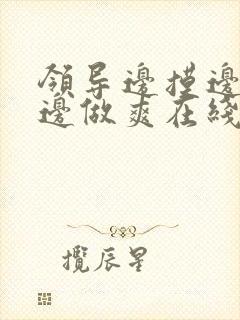 領导邊摸邊
邊做爽在綫
攬辰星